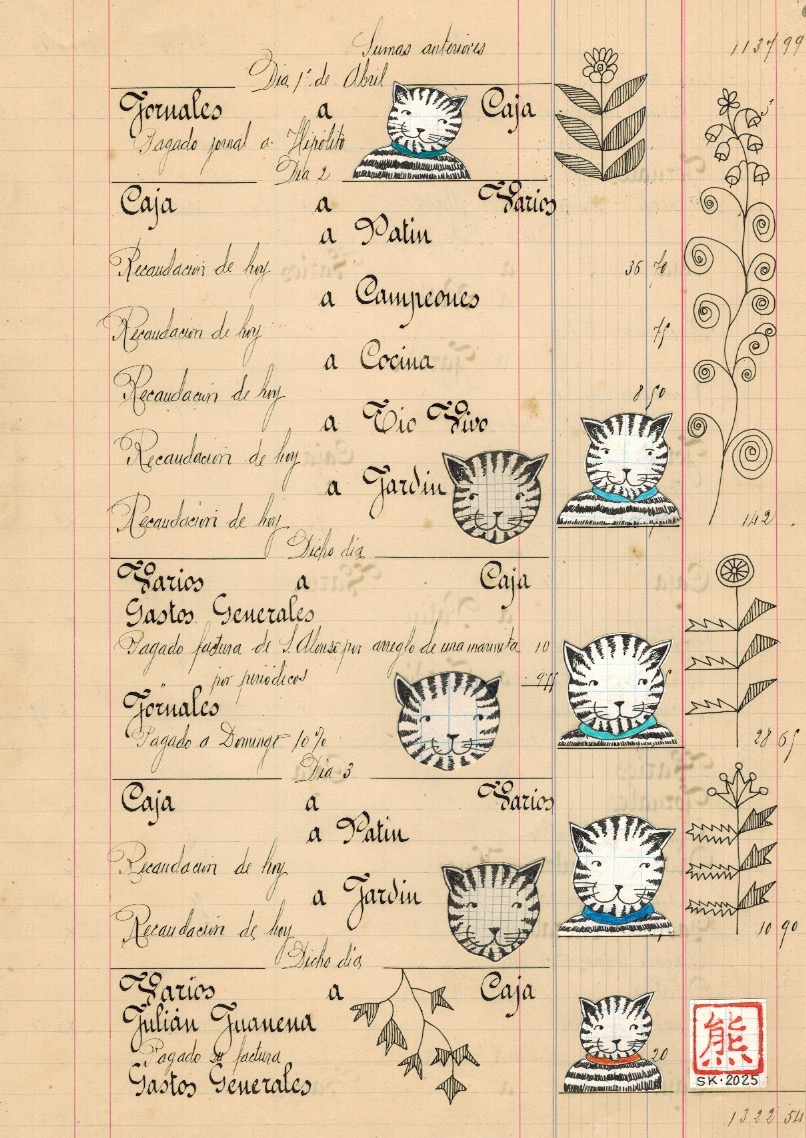 Sumas anteriores 1137 99
Dia 1º de Abril
Jornales a Caja
Pagado jornal a Hipólito
Dia 2
Caja a Varios
a Patin
Recaudación de hoy 36 70
a Campeones
Recaudación de hoy 75
a Cocina
Recaudación de hoy 8 50
a Tio Vivo
Recaudación de hoy
a Jardin
Recaudación de hoy 142
Dicho dia
Varios a Caja
Gastos Generales
Pagado factura de S. Alonso por arreglo de una 10
por periódicos
Jornales
Pagado a Domingo 10% 28 65
Dia 3
Caja a Varios
a Patin
Recaudación de hoy
a Jardin
Recaudación de hoy 10 90
Dicho dia
Varios a Caja
Julián
Pagado su factura 20
Gastos Generales
熊
SK·2025
1322 54